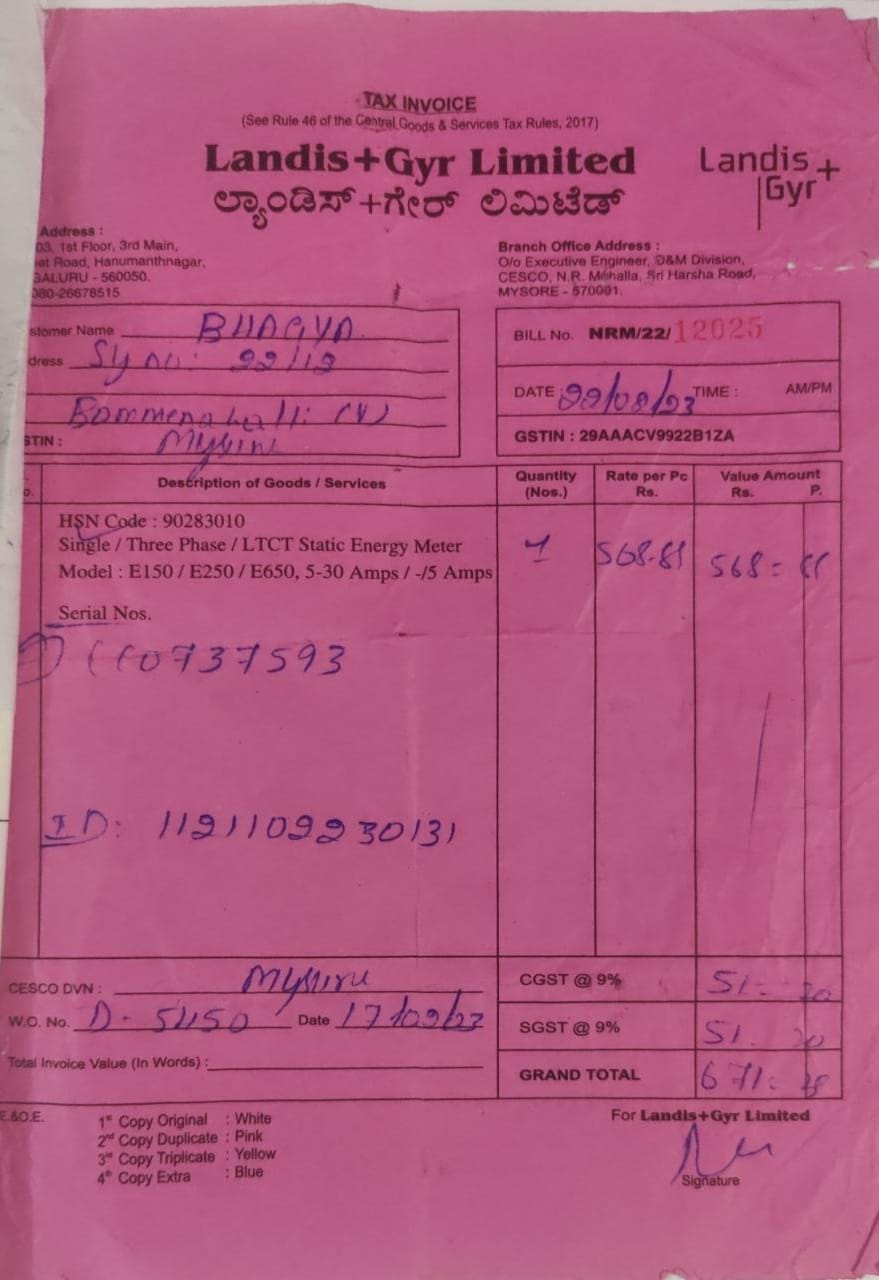 TAX INVOICE
(See Rule 46 of the Central Goods & Services Tax Rules, 2017)
Landis+Gyr Limited
ಲ್ಯಾಂಡಿಸ್+ಗೇರ್ ಲಿಮಿಟೆಡ್
Landis+
Gyr
Address :
03, 1st Floor, 3rd Main,
et Road, Hanumanthnagar,
GALURU - 560050.
080-26678515
Branch Office Address :
O/o Executive Engineer, O&M Division,
CESCO, N.R. Mohalla, Sri Harsha Road,
MYSORE - 570001.
stomer Name BHAGYA
dress Sy no: 22/12
(V)
STIN :
BILL No. NRM/22/12025
DATE : 22/08/23 TIME : AM/PM
GSTIN : 29AAACV9922B1ZA
Description of Goods / Services
Quantity (Nos.)
Rate per Pc Rs.
Value Amount Rs. P.
HSN Code : 90283010
Single / Three Phase / LTCT Static Energy Meter
Model : E150 / E250 / E650, 5-30 Amps / -/5 Amps
1 568-81 568=
Serial Nos.
0737593
ID: 1121102230131
CESCO DVN : Mysuru
W.O. No. D- 5450 Date
Total Invoice Value (In Words) :
CGST @ 9% 51- 20
SGST @ 9% 51. 20
GRAND TOTAL 671:
E.&O.E.
1st Copy Original : White
2nd Copy Duplicate : Pink
3rd Copy Triplicate : Yellow
4th Copy Extra : Blue
For Landis+Gyr Limited
Signature